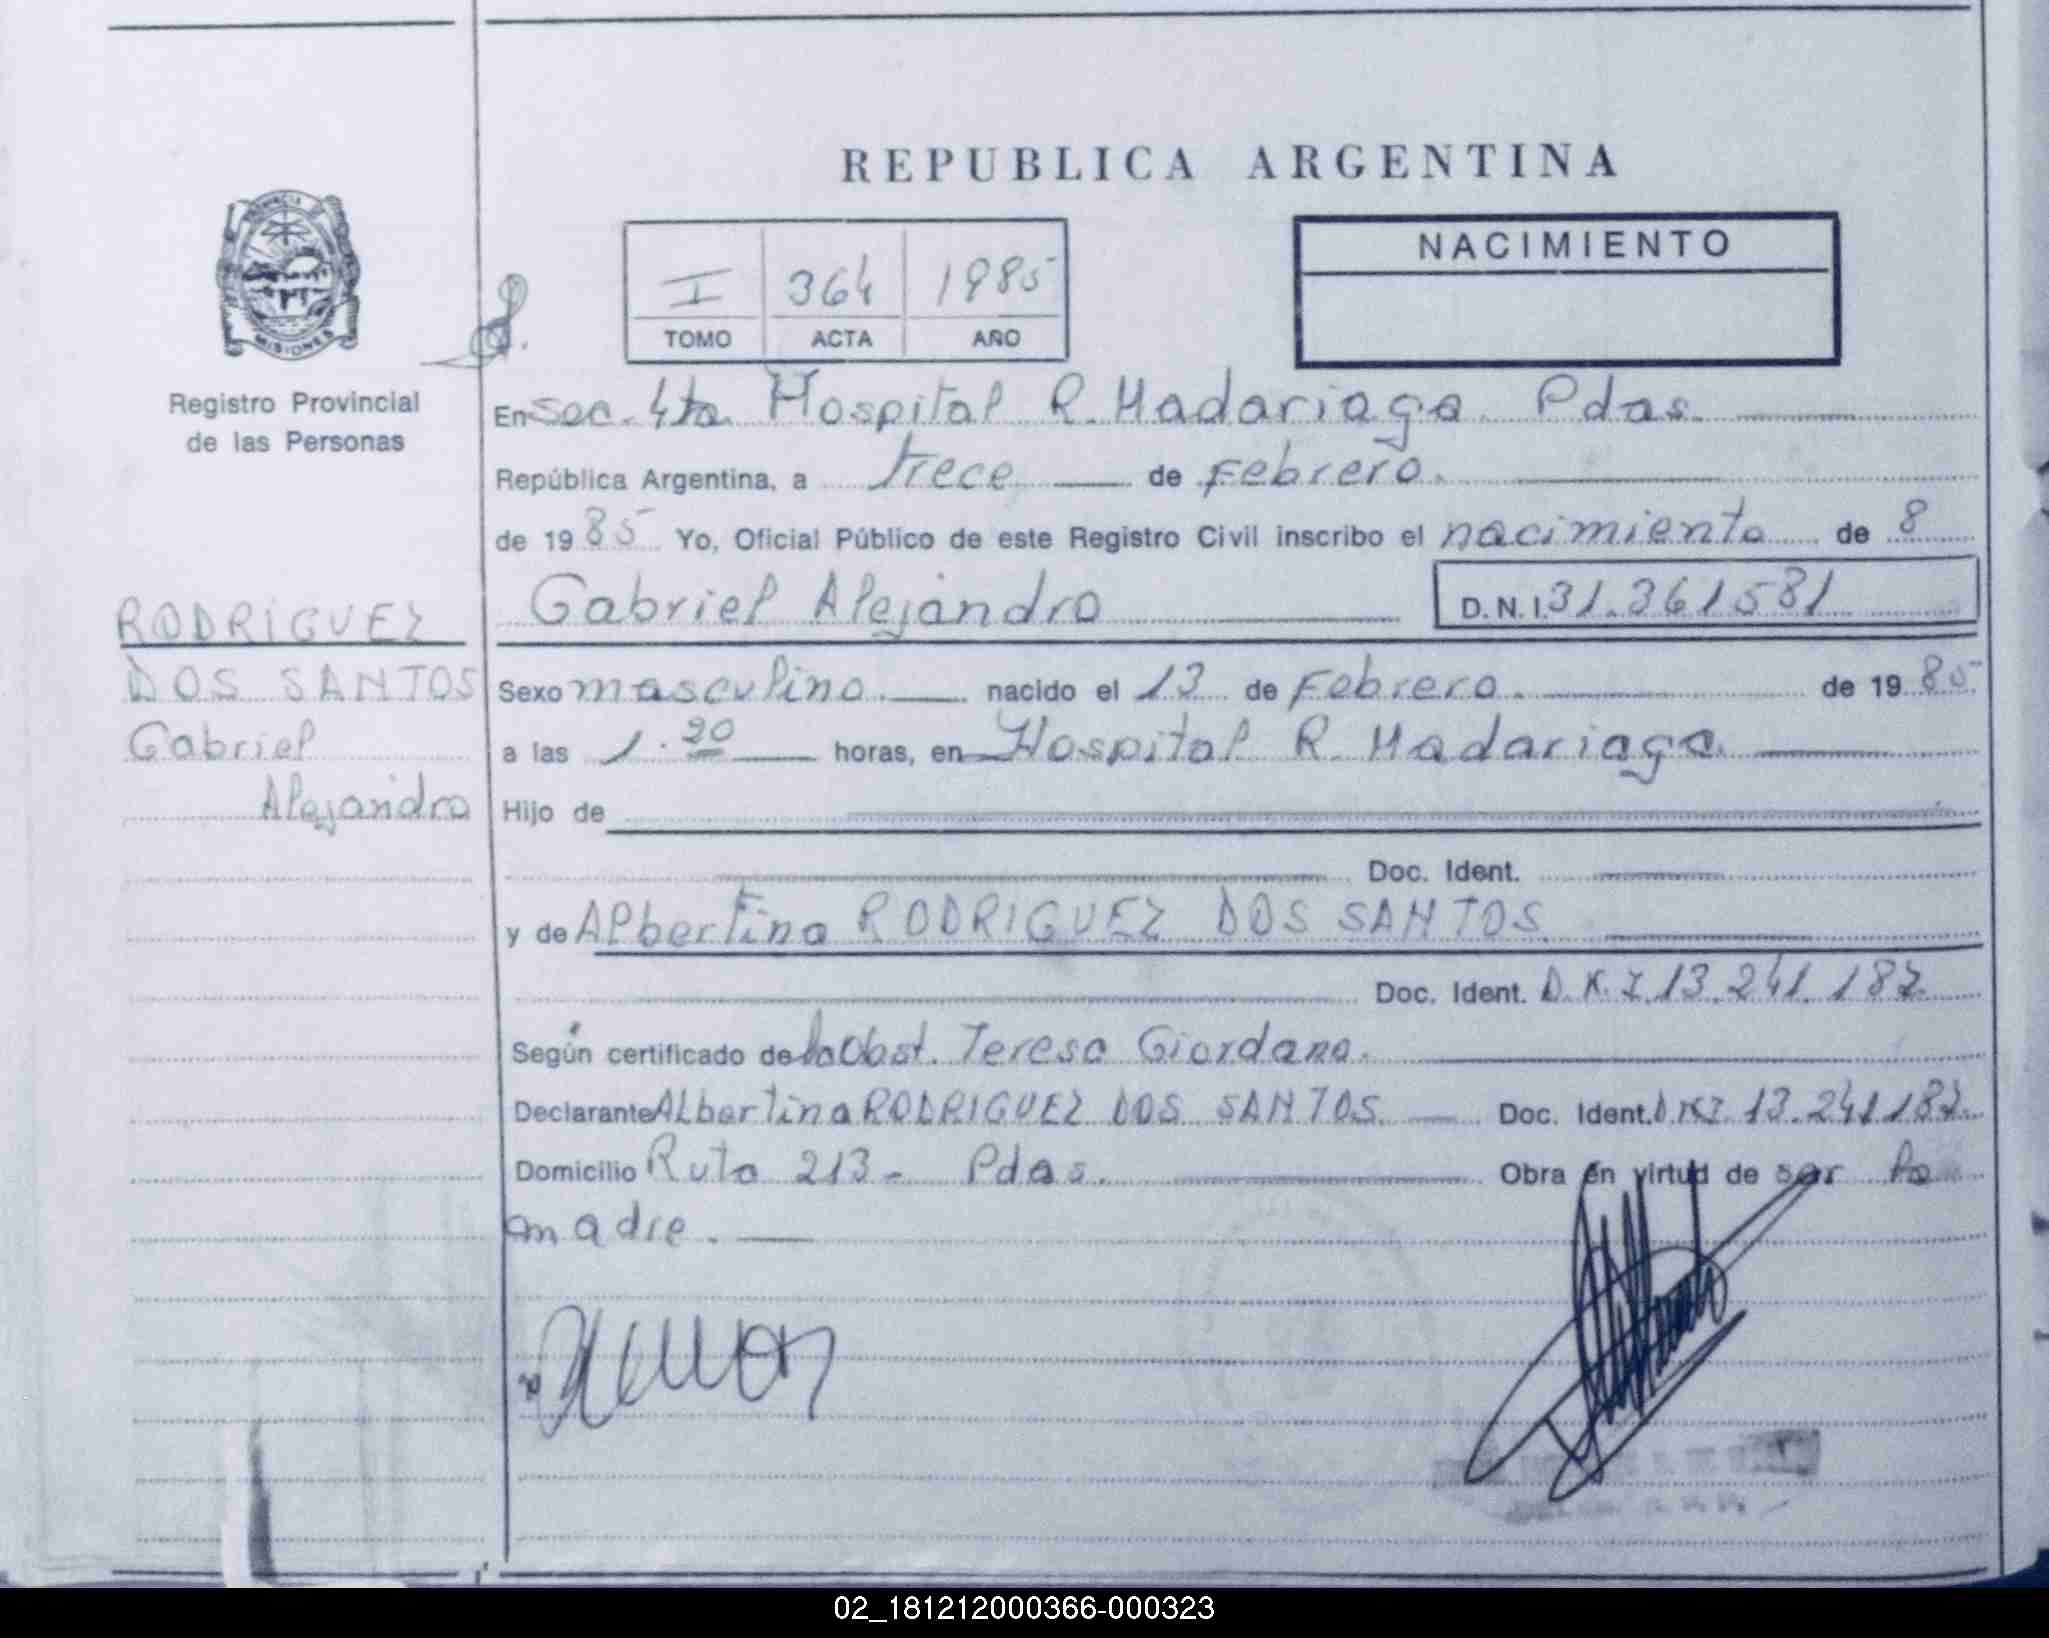 REPUBLICA ARGENTINA
PROVINCIA DE
MISIONES
Registro Provincial
de las Personas
I 364 1985
TOMO ACTA AÑO
NACIMIENTO
En Sec. 4ta. Hospital R. Madariaga. Pdas.
República Argentina, a trece de Febrero.
de 1985 Yo, Oficial Público de este Registro Civil inscribo el nacimiento de 8
Gabriel Alejandro D.N.I. 31.361581
RODRIGUEZ
DOS SANTOS
Gabriel
Alejandro
Sexo masculino. nacido el 13 de Febrero. de 1985
a las 1.20 horas, en Hospital R. Madariaga.
Hijo de
Doc. Ident.
y de Albertina RODRIGUEZ DOS SANTOS
Doc. Ident. D.N.I. 13.241.187
Según certificado de la Obst. Teresa Giordano.
Declarante Albertina RODRIGUEZ DOS SANTOS. Doc. Ident. DNI. 13.241187.
Domicilio Ruta 213- Pdas. Obra en virtud de ser la
madre.
02_181212000366-000323